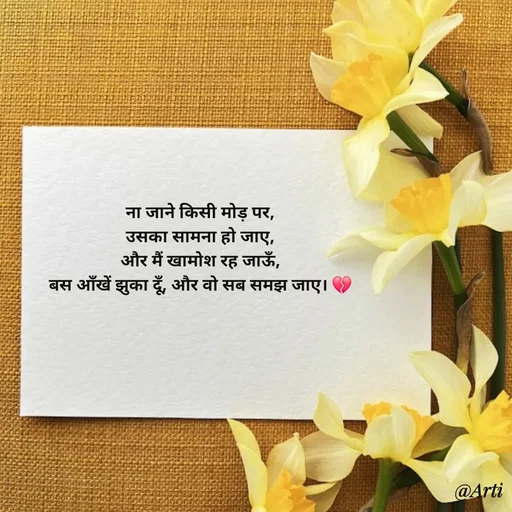 ना जाने किसी मोड़ पर,
उसका सामना हो जाए,
और मैं खामोश रह जाऊँ,
बस आँखें झुका दूँ, और वो सब समझ जाए। 💔
@Arti